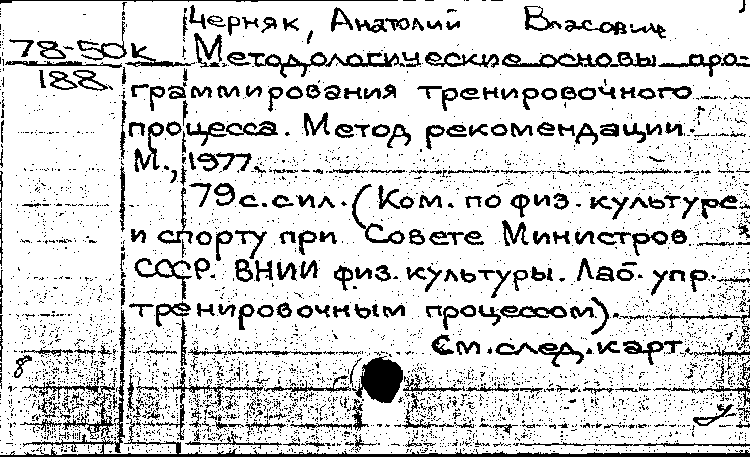 Черняк, Анатолий Власович
78-50к Методологические основы про-
188 граммирования тренировочного
процесса. Метод рекомендации.
М., 1977.
79с.сил. (Ком. по физ. культуре
и спорту при Совете Министров
СССР. ВНИИ физ. культуры. Лаб. упр.
тренировочным процессом).
См. след. карт.
8